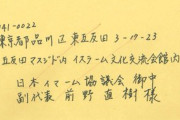 141-0022
東京都品川区東五反田3-19-23
五反田マスジド内 イスラーム文化交流会館内
日本イマーム協議会 御中
副代表 前野直樹 様